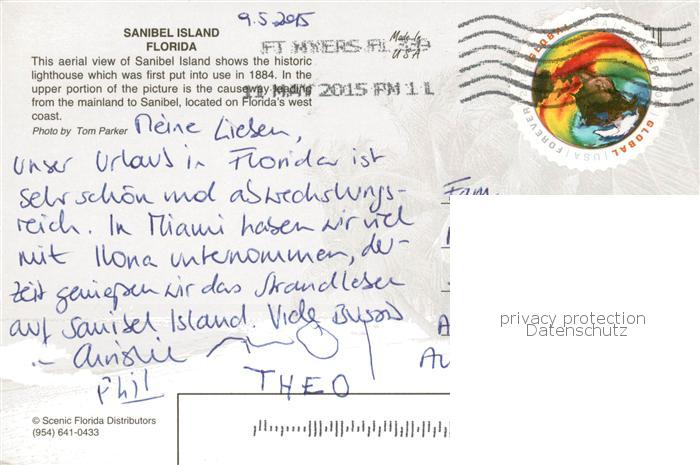 9.5.2015
SANIBEL ISLAND
FLORIDA
This aerial view of Sanibel Island shows the historic
lighthouse which was first put into use in 1884. In the
upper portion of the picture is the causeway leading
from the mainland to Sanibel, located on Florida's west
coast.
Photo by Tom Parker
Made In
USA
FT MYERS FL 339
11 MAY 2015 PM 1 L
GLOBAL
GLOBAL | USA | FOREVER
Meine Lieben,
unser Urlaub in Florida ist
sehr schön und abwechslungs-
reich. In Miami haben wir viel
mit Ilona unternommen, der-
zeit genießen wir das Strandleben
auf Sanibel Island. Viele Bussis
Phil
THEO
Fam.
privacy protection
Datenschutz
© Scenic Florida Distributors
(954) 641-0433